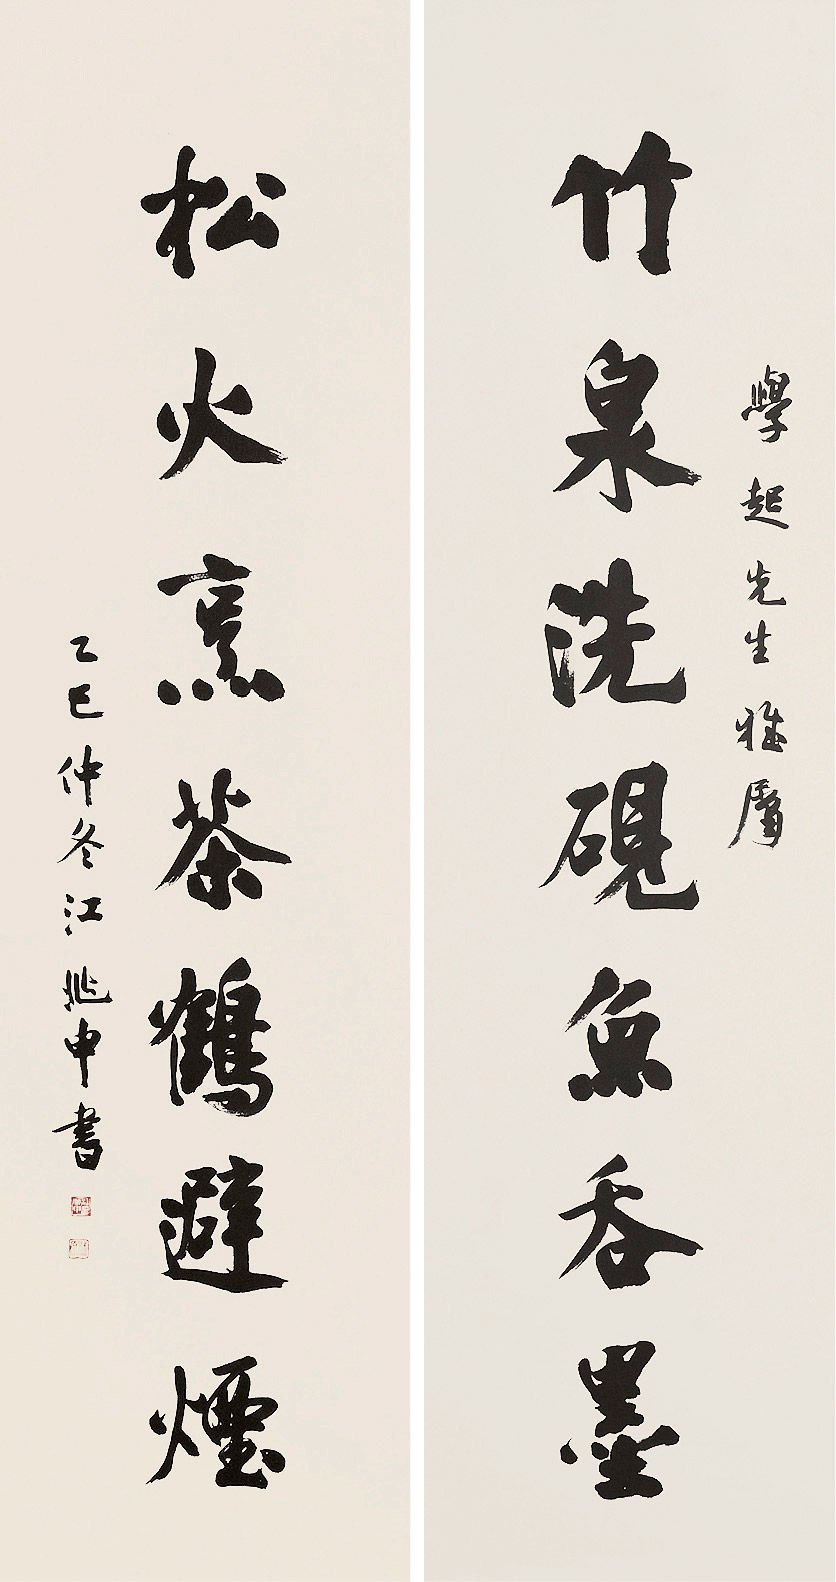 學起先生雅屬
竹泉洗硯魚吞墨
松火烹茶鶴避煙
乙巳仲冬江兆申書